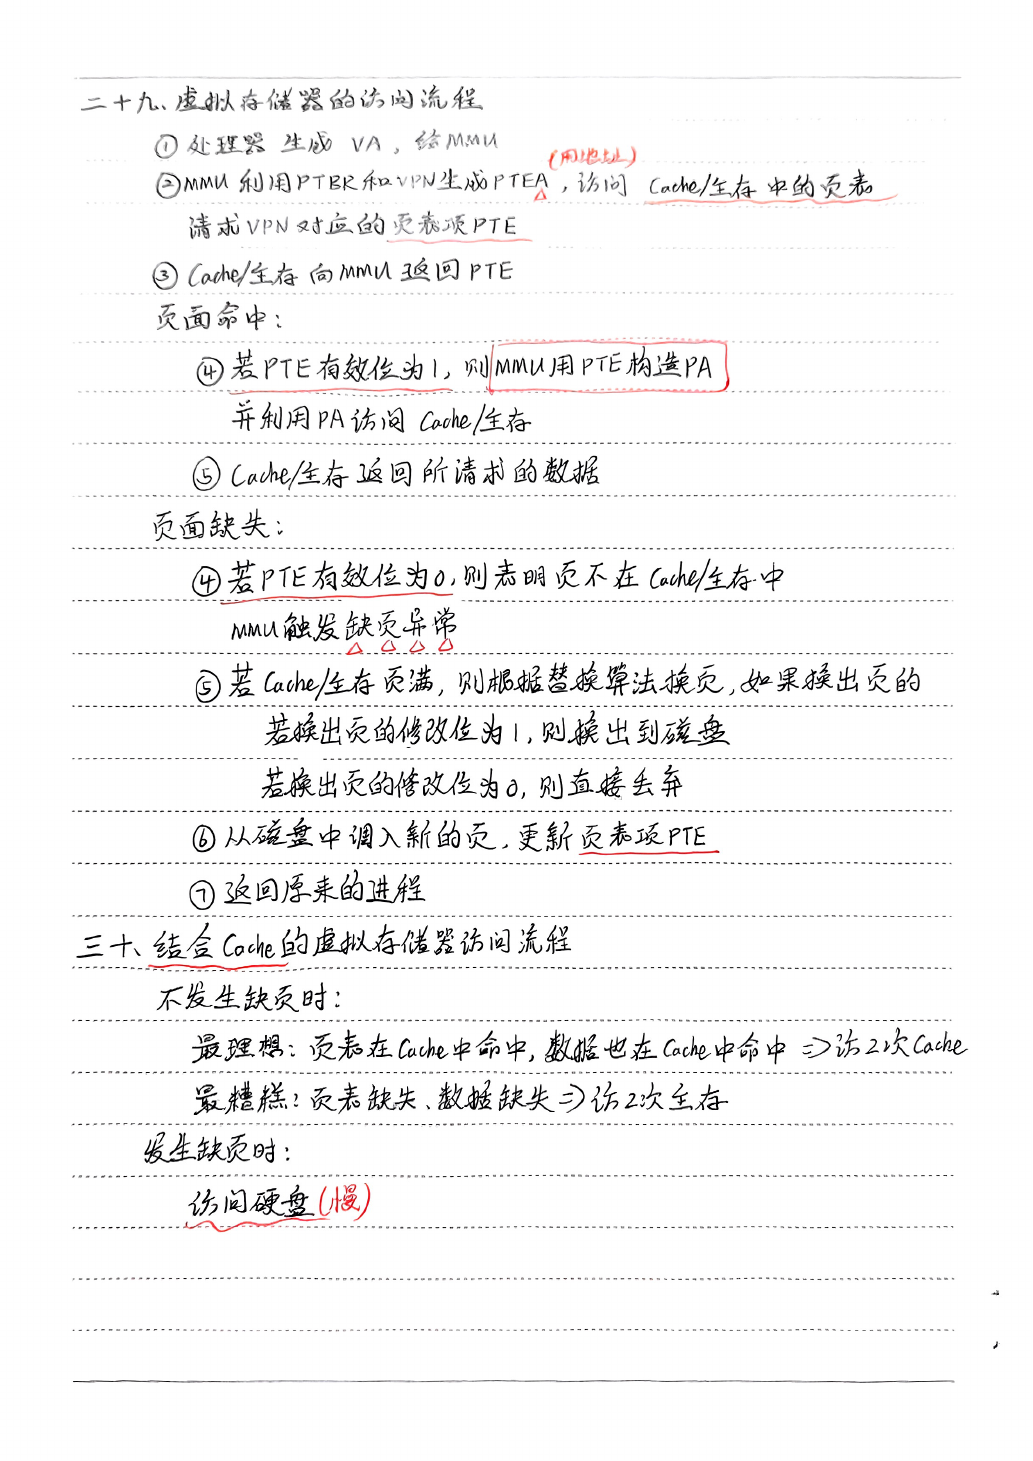 二十九、虚拟存储器的访问流程
① 处理器 生成 VA，给MMU
(用地址)
②MMU 利用PTBR和VPN生成PTEA，访问 Cache/主存 中的页表
请求VPN对应的页表项PTE
③ Cache/主存 向MMU返回PTE
页面命中：
④若PTE有效位为1，则MMU用PTE构造PA
并利用PA访问 Cache/主存
⑤ Cache/主存 返回所请求的数据
页面缺失：
④若PTE有效位为0，则表明页不在Cache/主存中
MMU触发缺页异常
⑤若Cache/主存页满，则根据替换算法换页，如果换出页的
若换出页的修改位为1，则换出到磁盘
若换出页的修改位为0，则直接丢弃
⑥从磁盘中调入新的页，更新页表项PTE
⑦返回原来的进程
三十、结合Cache的虚拟存储器访问流程
不发生缺页时：
最理想：页表在Cache中命中，数据也在Cache中命中 ⇒访2次Cache
最糟糕：页表缺失、数据缺失⇒访2次主存
发生缺页时：
访问硬盘(慢)